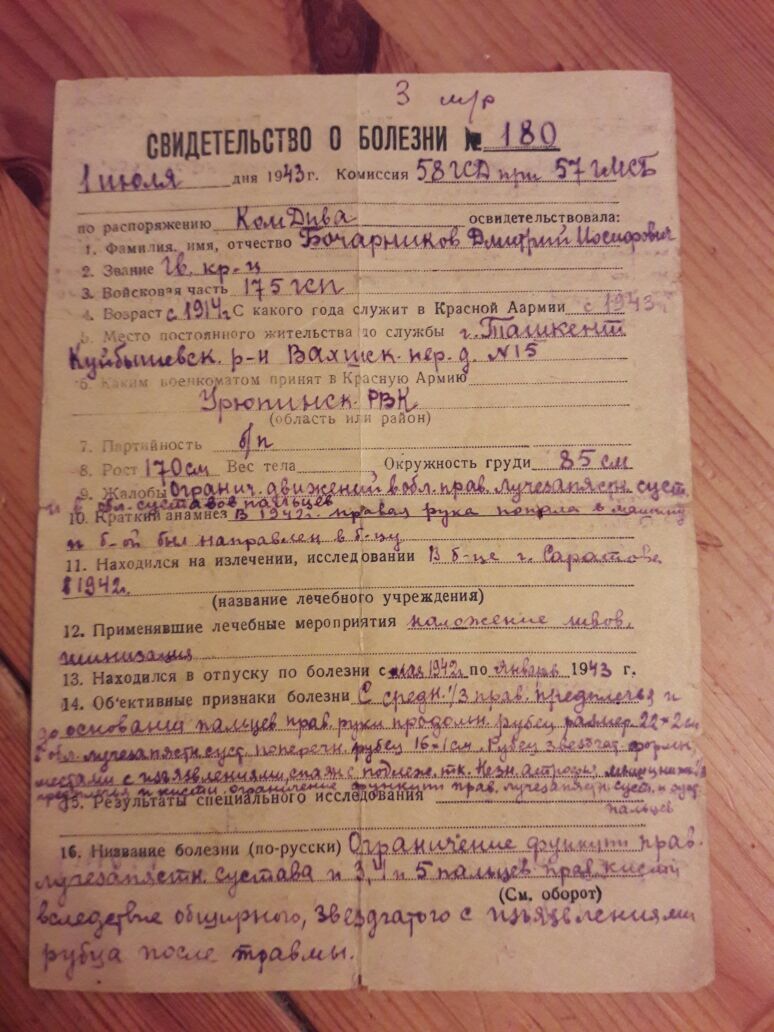 3 м/р
СВИДЕТЕЛЬСТВО О БОЛЕЗНИ № 180
1 июля дня 1943 г. Комиссия 58 ГСД при 57 гМСБ
по распоряжению КомДива освидетельствовала:
1. Фамилия, имя, отчество Бочарников Дмитрий Иосифович
2. Звание Гв. кр-ц
3. Войсковая часть 175 гсп
4. Возраст с 1914 г. С какого года служит в Красной Аармии с 1943 г.
5. Место постоянного жительства до службы г. Ташкент
Куйбышевск. р-н Вахшск. пер. д. №15
6. Каким военкоматом принят в Красную Армию
Урюпинск. РВК
(область или район)
7. Партийность б/п
8. Рост 170 см Вес тела Окружность груди 85 см
9. Жалобы Огранич. движений в обл. прав. лучезапястн. суст.
и в обл. суставов пальцев
10. Краткий анамнез В 1942 г. правая рука попала в машину
и б-ой был направлен в б-цу
11. Находился на излечении, исследовании В б-це г. Саратова
в 1942 г.
(название лечебного учреждения)
12. Применявшие лечебные мероприятия наложение швов,
шинизация
13. Находился в отпуску по болезни с мая 1942 г. по Январь 1943 г.
14. Об'ективные признаки болезни С средн. 1/3 прав. предплечья и
до основания пальцев прав. руки продольн. рубец размер. 22×2 см
В обл. лучезапястн. суст. поперечн. рубец 16×1 см. Рубец звездчат. формы,
местами с изъязвлениями, спаян с подлеж. тк. Незн. атрофия мышц нижн. 1/3
предплечья и кисти. ограничение функции прав. лучезапястн. суст. и суст.
пальцев
15. Результаты специального исследования
16. Низвание болезни (по-русски) Ограничение функции прав.
лучезапястн. сустава и 3, 4 и 5 пальцев прав. кисти
(См. оборот)
вследствие обширного, звездчатого с изъязвлениями
рубца после травмы.